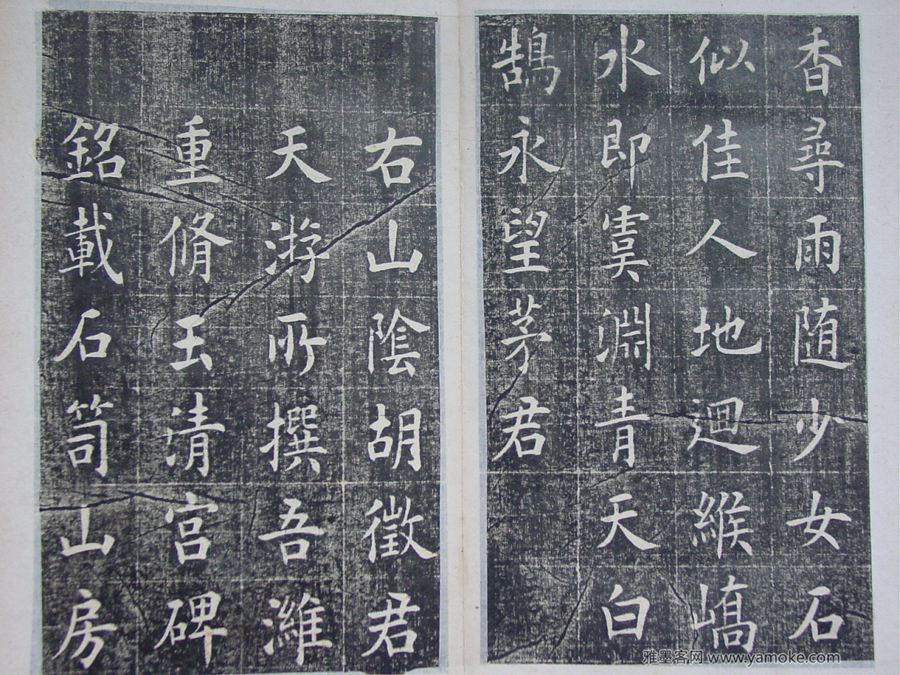 香尋雨随少女石
似佳人地迴緱嶠
水即虞淵青天白
鵠永望茅君
右山陰胡徵君
天游所撰吾濰
重脩玉清宮碑
銘載石笥山房
雅墨客网 www.yamoke.com